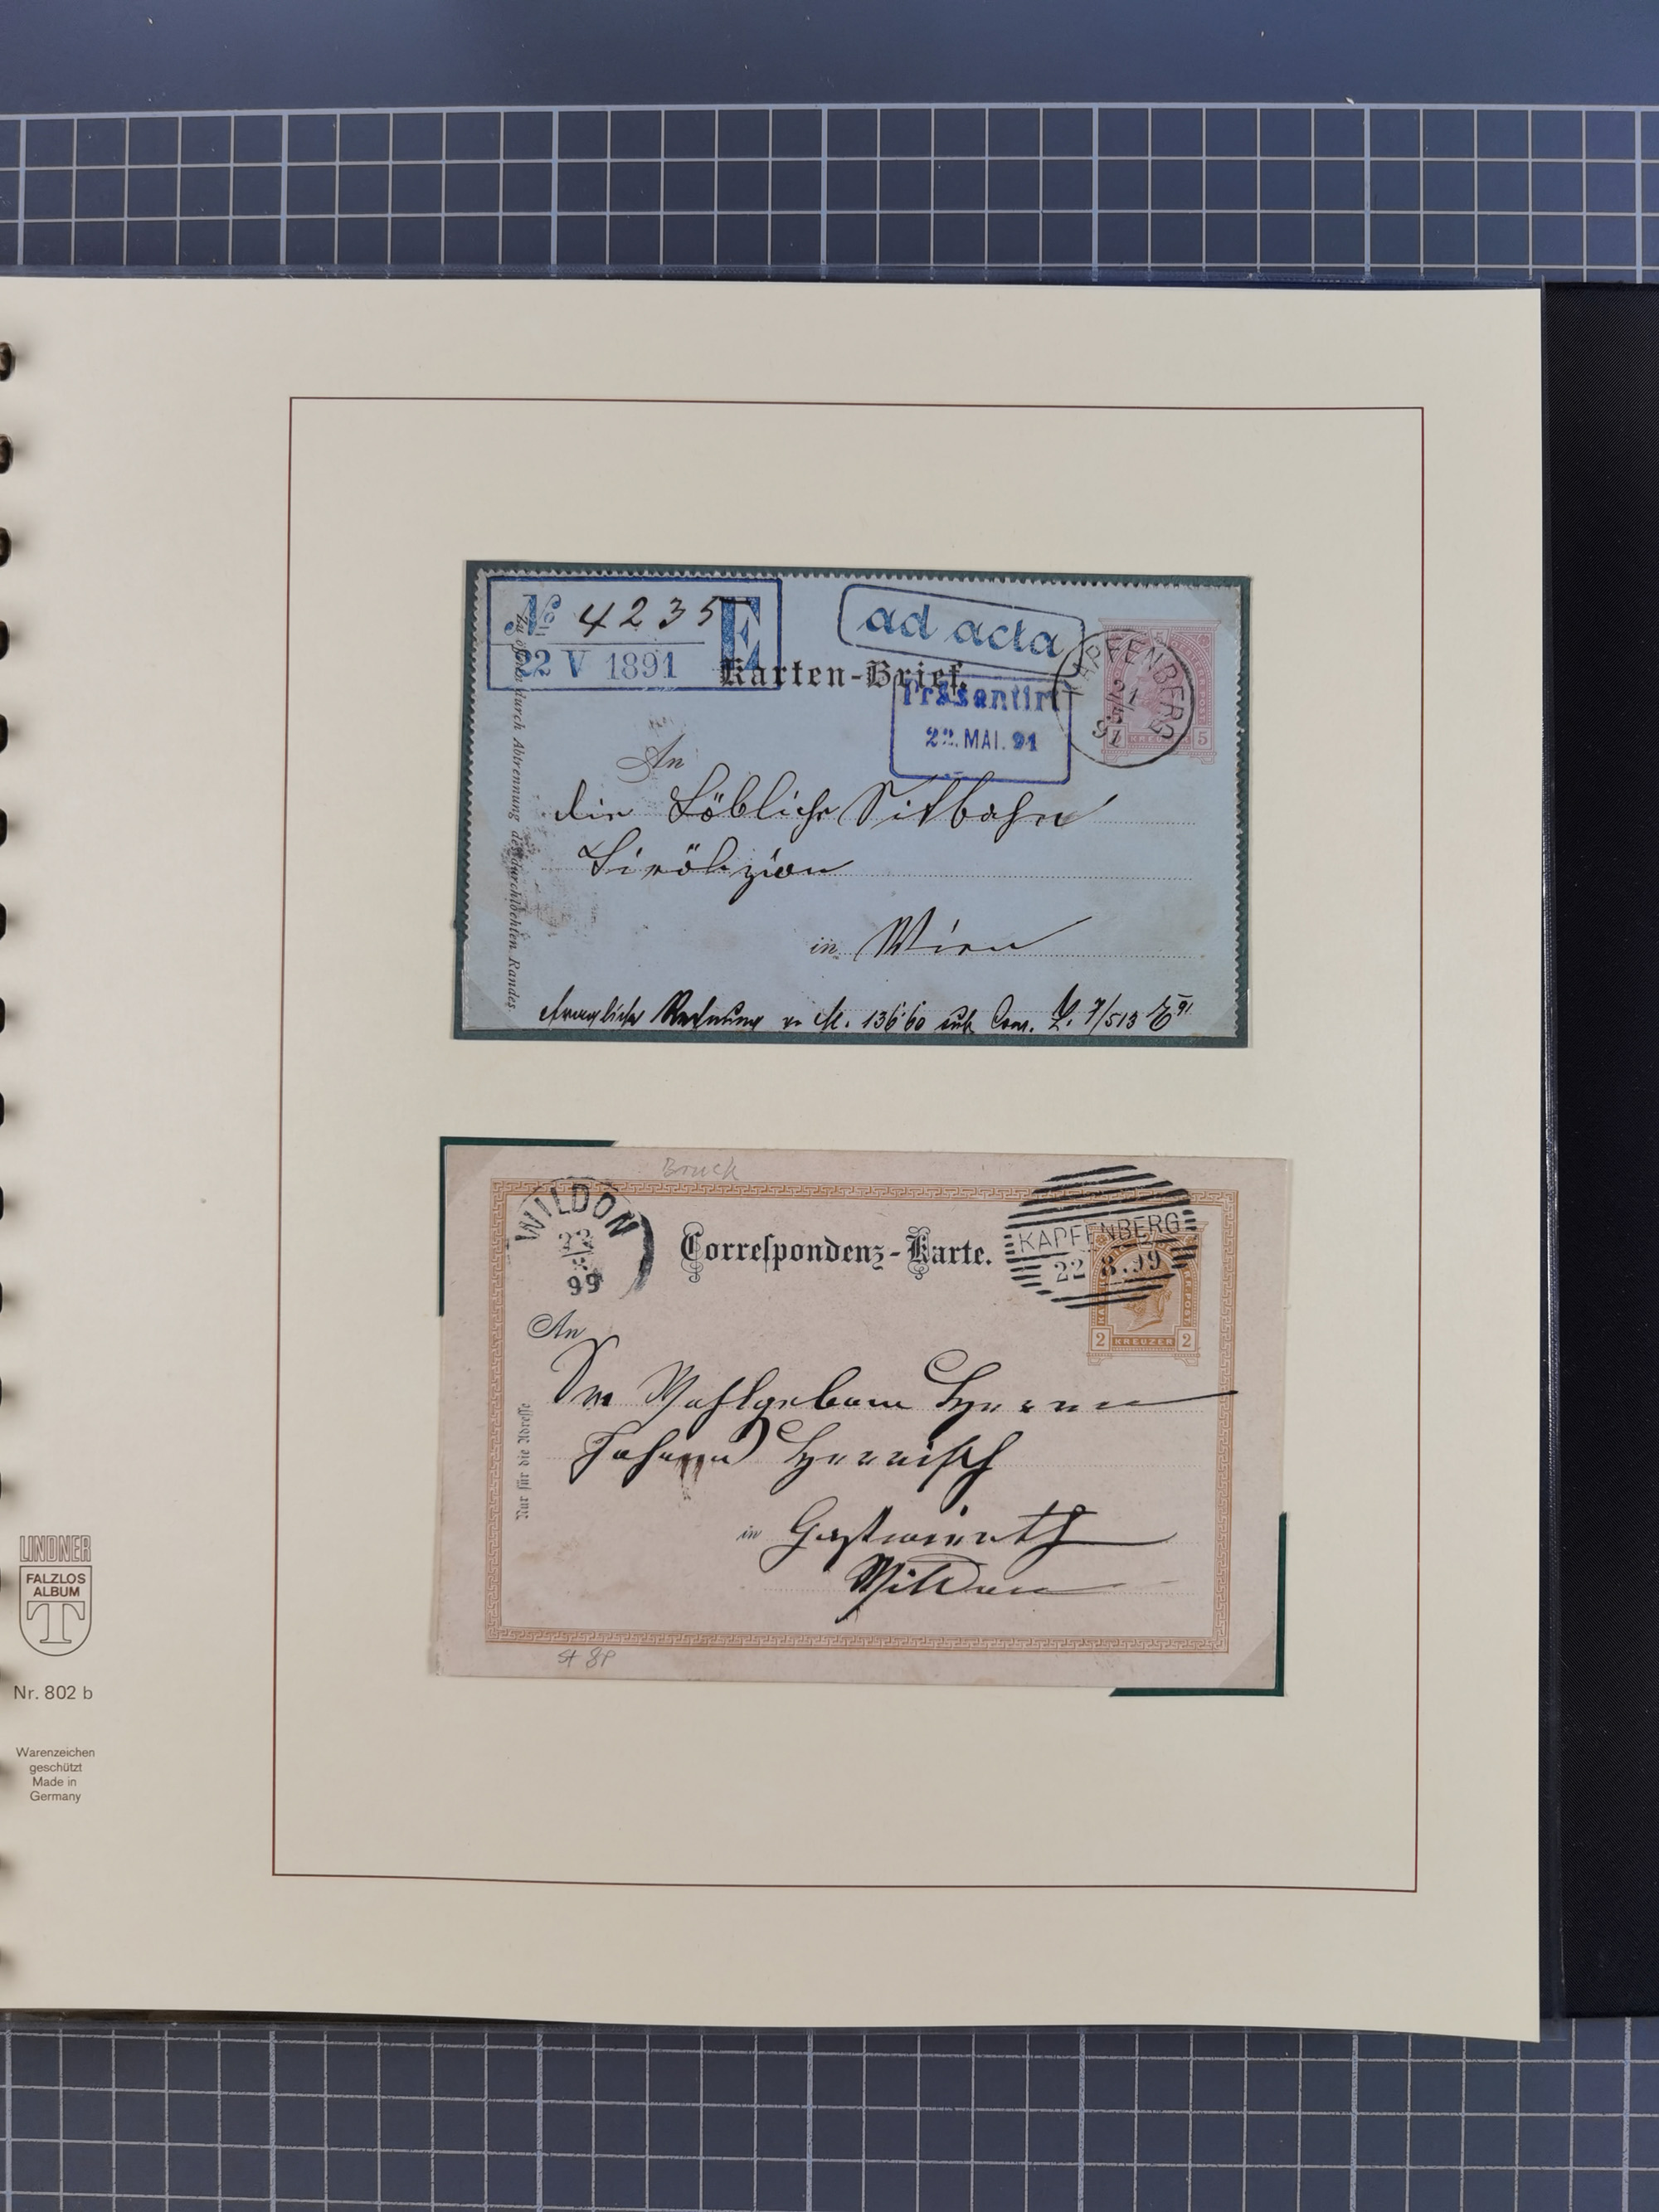 № 4235
E
22 V 1891
ad acta
Karten-Brief.
Präsentirt
22. MAI. 91
KAPFENBERG
21
5
91
KREUZER 5
Zu öffnen durch Abtrennung des durchlochten Randes.
An
die Löbliche Südbahn
in Wien
Rechnung
136·60
Bruck
WILDON
99
Correspondenz-Karte.
KAPFENBERG
22 8.99
2 KREUZER 2
An
Nur für die Adresse
Johann
in Gastwirth
Wildon
St 8P
LINDNER
FALZLOS
ALBUM
T
Nr. 802 b
Warenzeichen
geschützt
Made in
Germany